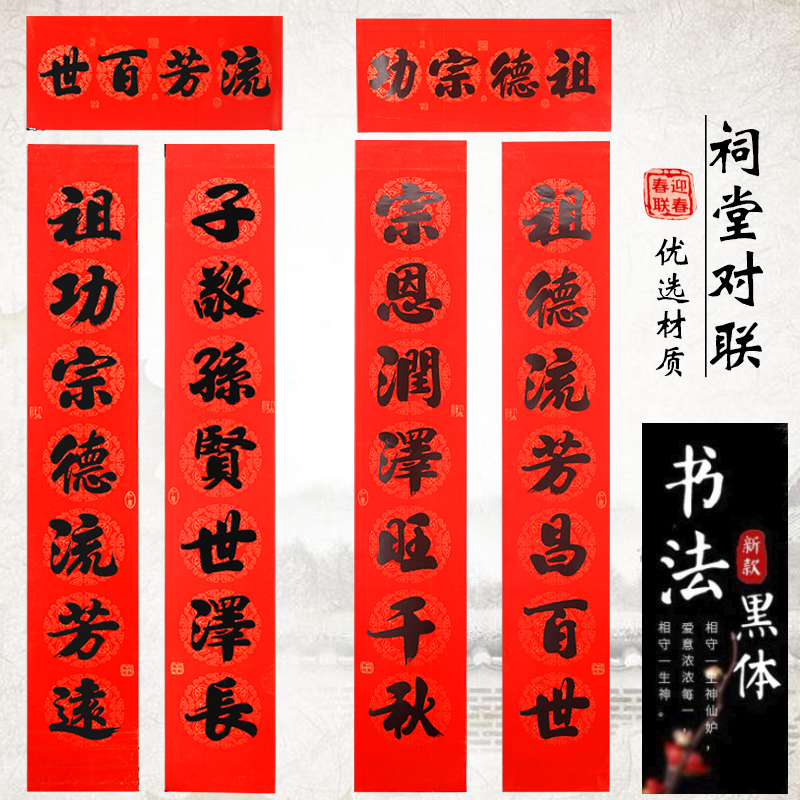 祖德宗功
祖德流芳昌百世
宗恩潤澤旺千秋
流芳百世
子敬孫賢世澤長
祖功宗德流芳遠
祠堂对联
迎春
春联
优选材质
书法
新款
黑体
相守一生神仙妒，
爱意浓浓每一，
相守一生神。